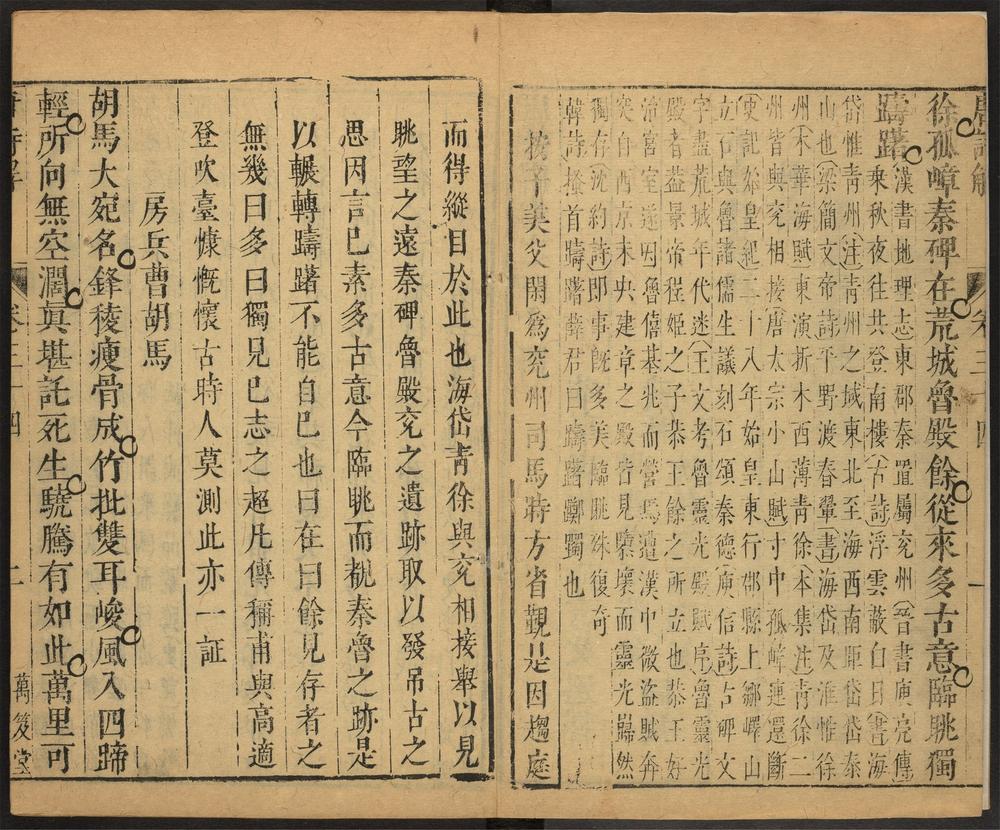 徐孤嶂秦碑在荒城魯殿餘從來多古意臨眺獨
躊躇
漢書地理志東郡秦置屬兗州晉書庾亮傳
乘秋夜往共登南樓古詩浮雲蔽白日書海
岱惟青州注青州之域東北至海西南距岱岱泰
山也梁簡文帝詩平野渡春翬書海岱及淮惟徐
州木華海賦東演析木西薄青徐本集注青徐二
州皆與兗相接唐太宗小山賦寸中孤嶂連還斷
史記始皇紀二十八年始皇東行郡縣上鄒嶧山
立石與魯諸儒生議刻石頌秦德庾信詩古碑文
字盡荒城年代迷王文考魯靈光殿賦序魯靈光
殿者蓋景帝程姬之子恭王餘之所立也恭王好
治宮室遂因魯僖基兆而營焉遭漢中微盜賊奔
突自西京未央建章之殿皆見隳壞而靈光巋然
獨存沈約詩即事既多美臨眺殊復奇
韓詩搔首躊躇薛君曰躊躇躑躅也
按子美父閑為兗州司馬時方省覲是因趨庭
而得縱目於此也海岱青徐與兗相接舉以見
眺望之遠秦碑魯殿兗之遺跡取以發吊古之
思因言已素多古意今臨眺而覩秦魯之跡是
以輾轉躊躇不能自已也曰在曰餘見存者之
無幾曰多曰獨見已志之超凡傳稱甫與高適
登吹臺慷慨懷古時人莫測此亦一証
房兵曹胡馬
胡馬大宛名鋒稜瘦骨成竹批雙耳峻風入四蹄
輕所向無空濶眞堪託死生驍騰有如此萬里可
卷三十四
二
萬笈堂